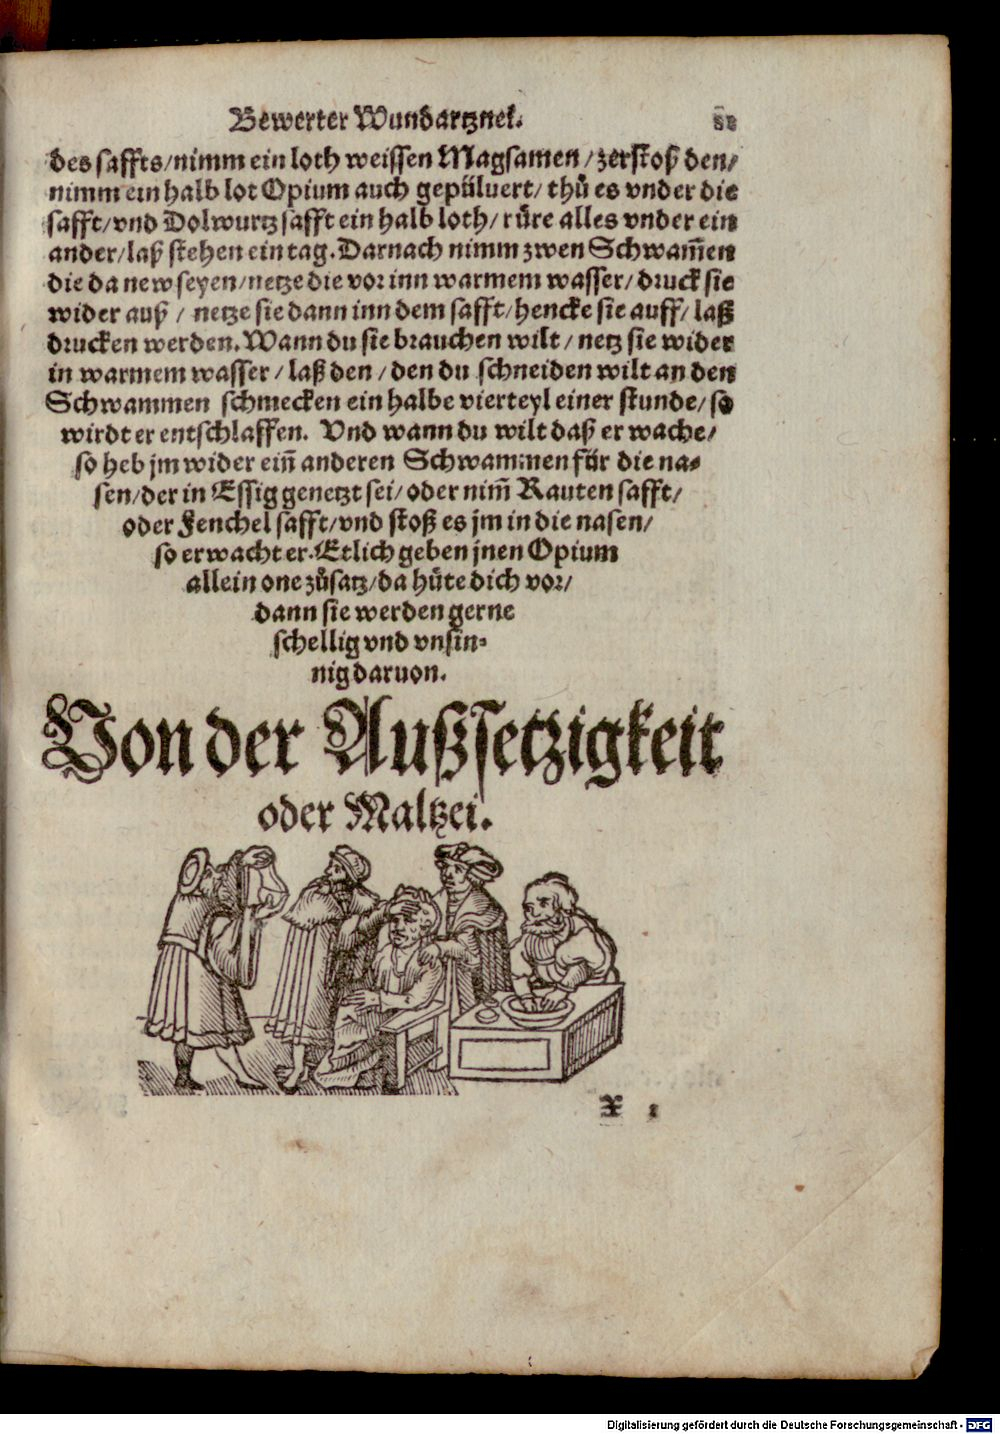 Bewerter Wundartznei.
des saffts/nimm ein loth weissen Magsamen/zerstoß den/
nimm ein halb lot Opium auch gepüluert/thů es vnder die
safft/vnd Dolwurtz safft ein halb loth/rüre alles vnder ein
ander/laß stehen ein tag. Darnach nimm zwen Schwam̃en
die da new seyen/netze die vor inn warmem wasser/druck sie
wider auß/ netze sie dann inn dem safft/hencke sie auff/laß
drucken werden. Wann du sie brauchen wilt/netz sie wider
in warmem wasser/laß den/den du schneiden wilt an den
Schwammen schmecken ein halbe vierteyl einer stunde/so
wirdt er entschlaffen. Vnd wann du wilt daß er wache/
so heb jm wider ein̄ anderen Schwammen für die na-
sen/der in Essig genetzt sei/oder nim̄ Rauten safft/
oder Fenchel safft/vnd stoß es jm in die nasen/
so erwacht er. Etlich geben jnen Opium
allein one zůsatz/da hüte dich vor/
dann sie werden gerne
schellig vnd vnsin-
nig daruon.
Von der Außsetzigkeit
oder Maltzei.
X 1
Digitalisierung gefördert durch die Deutsche Forschungsgemeinschaft - DFG